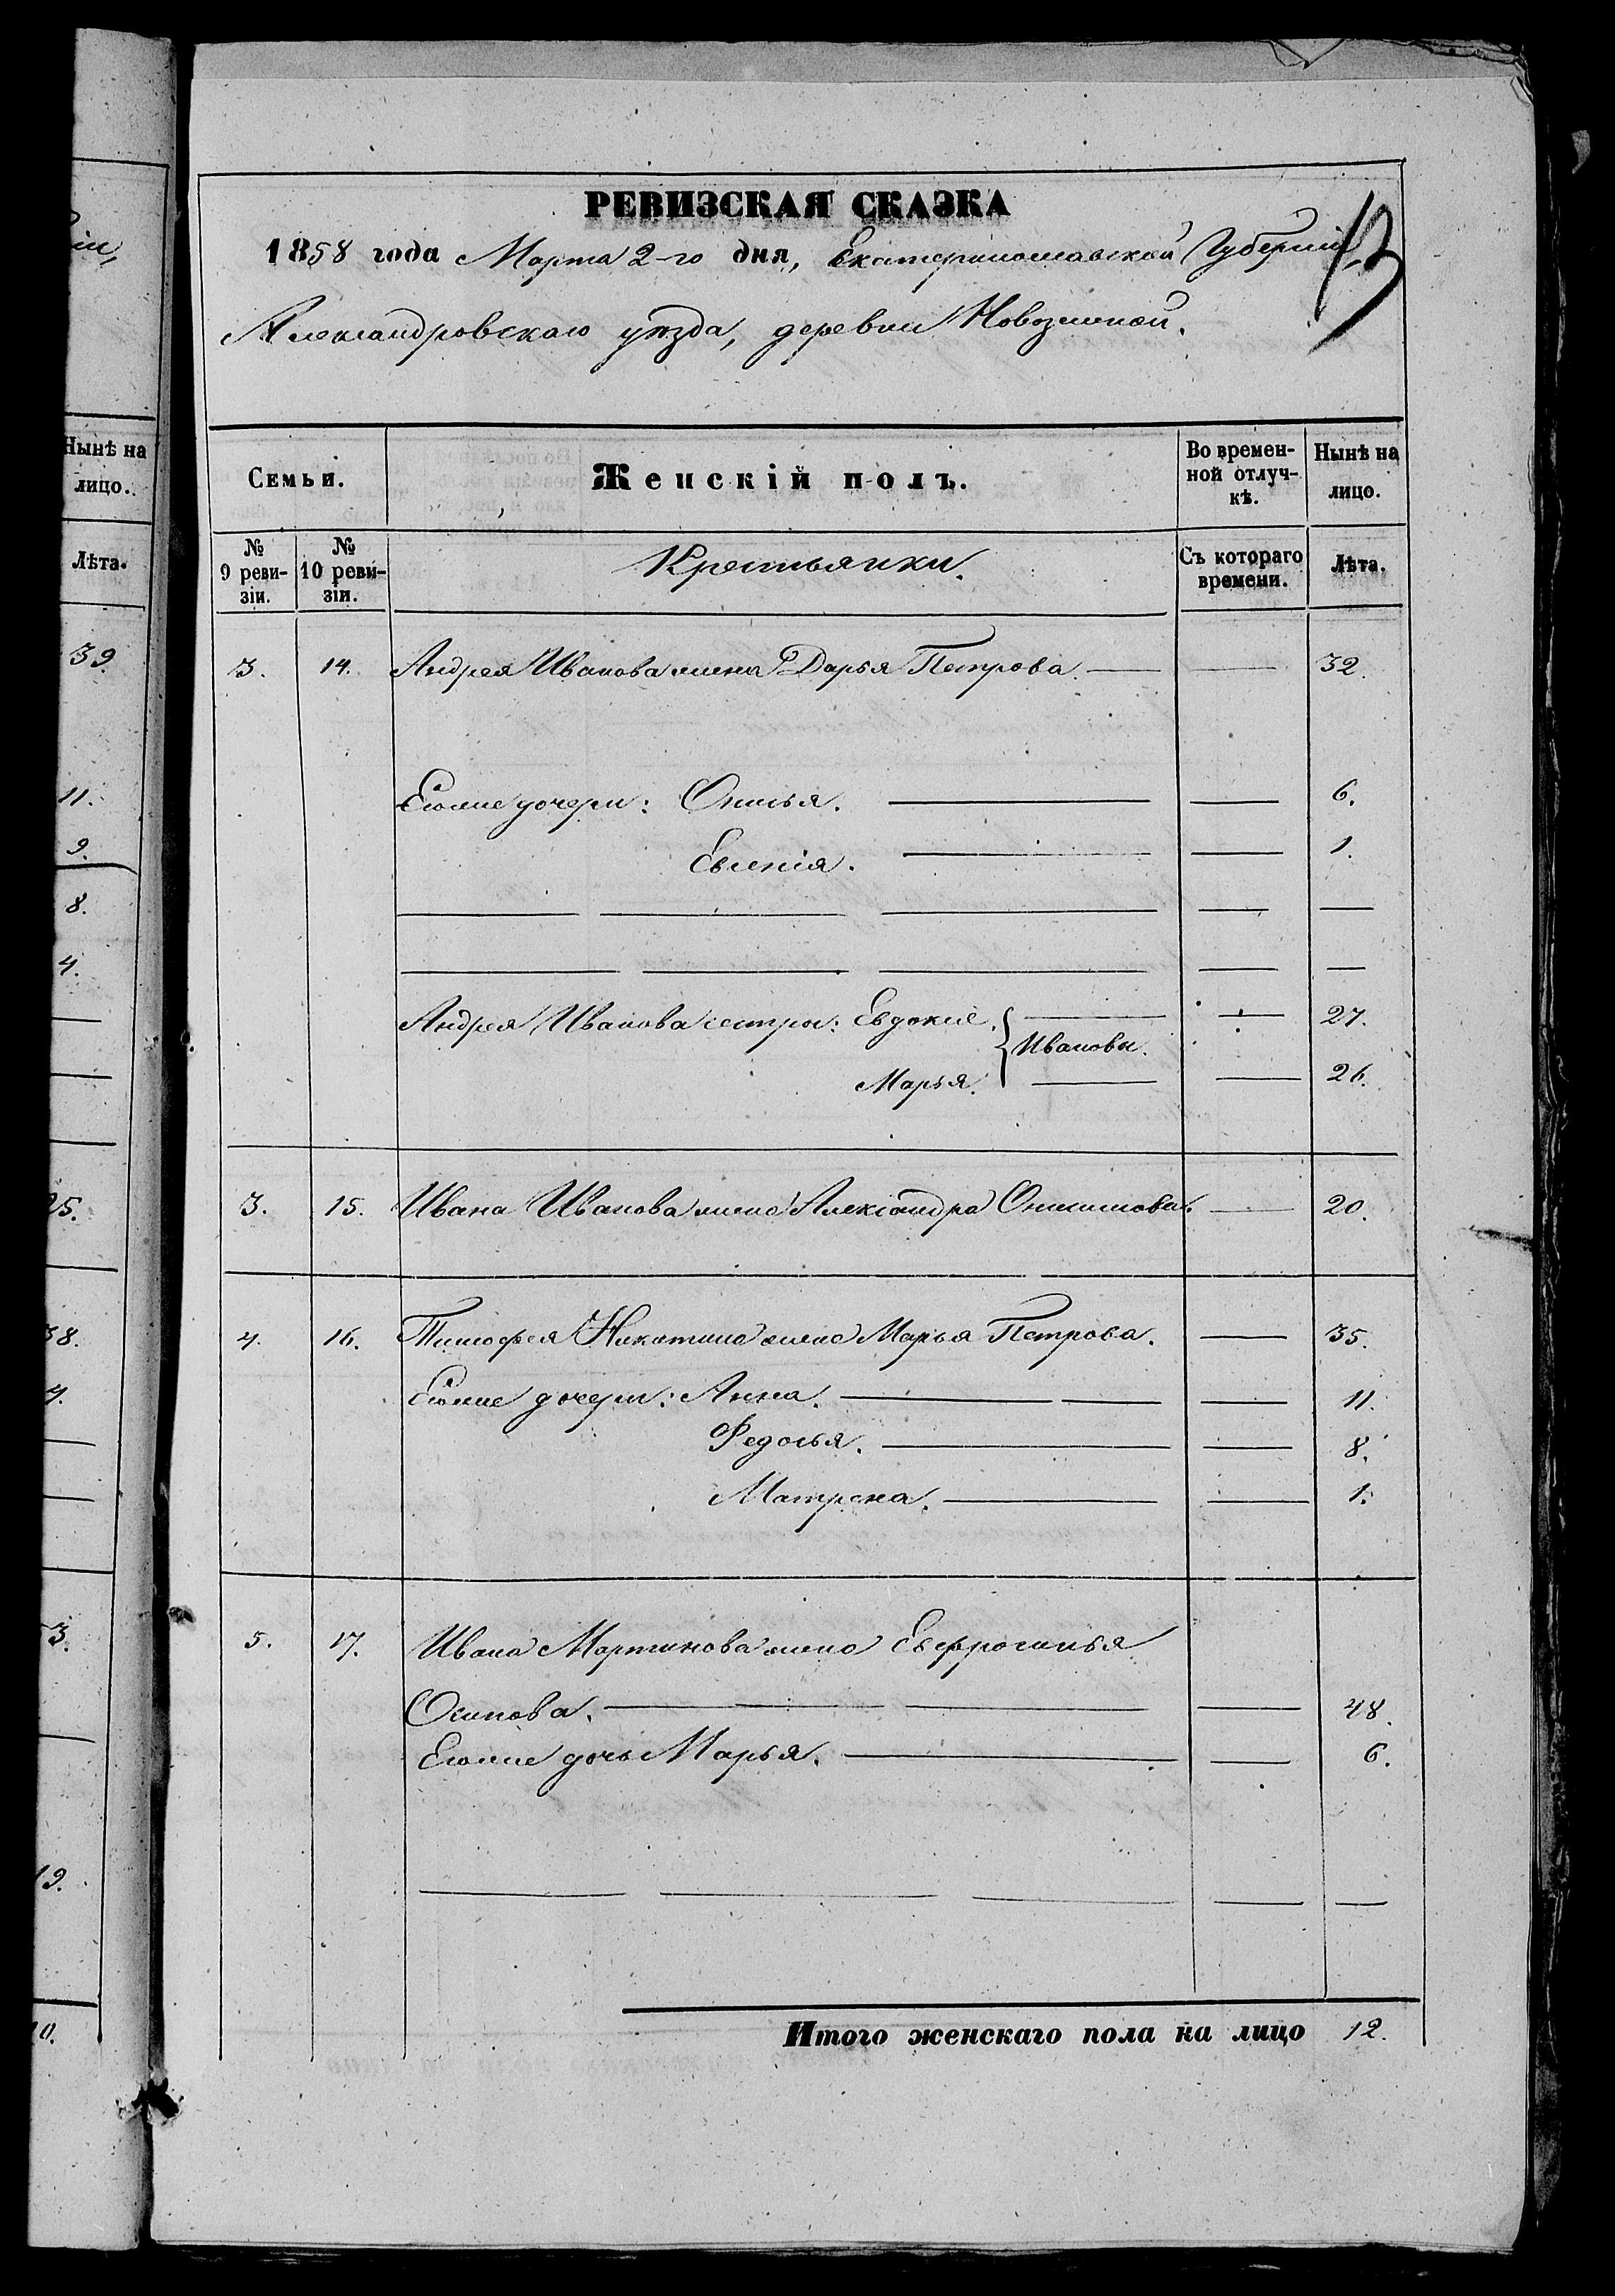 іи,
Нынѣ на
лицо.
Лѣта.
39
11.
9.
8.
4.
25.
38.
3.
19.
13
РЕВИЗСКАЯ СКАЗКА
1858 года Марта 2-го дня, Екатеринославской Губерніи,
Александровскаго уѣзда, деревни
Семьи.
Женскій полъ.
Во времен-
ной отлуч-
кѣ.
Нынѣ на
лицо.
№
9 реви-
зіи.
№
10 реви-
зіи.
Крестьянки.
Съ котораго
времени.
Лѣта.
3. 14. Андрея Иванова жена Дарья Петрова. 32.
Егоже дочери: 6.
Евгенія. 1.
Андрея Иванова сестры: Евдокія. 27.
Ивановы.
Марья. 26.
3. 15. Ивана Иванова жена Александра 20.
4. 16. Тимофея Никитина жена Марья Петрова. 35.
Егоже дочери: Анна. 11.
Федосья. 8.
Матрена. 1.
5. 17. Ивана Мартинова жена Евфросинья
Осипова. 48.
Егоже дочь Марья. 6.
Итого женскаго пола на лицо 12.